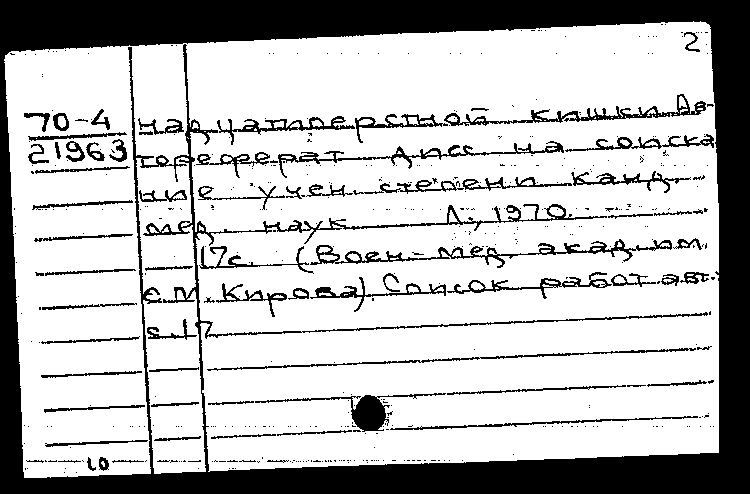 2
70-4
21963
надцатиперстной кишки. Ав-
тореферат дисс на соиска
ние учен. степени канд.
мед. наук. Л., 1970.
17с. (Воен.-мед. акад. им.
С.М. Кирова). Список работ авт.:
с.17
10